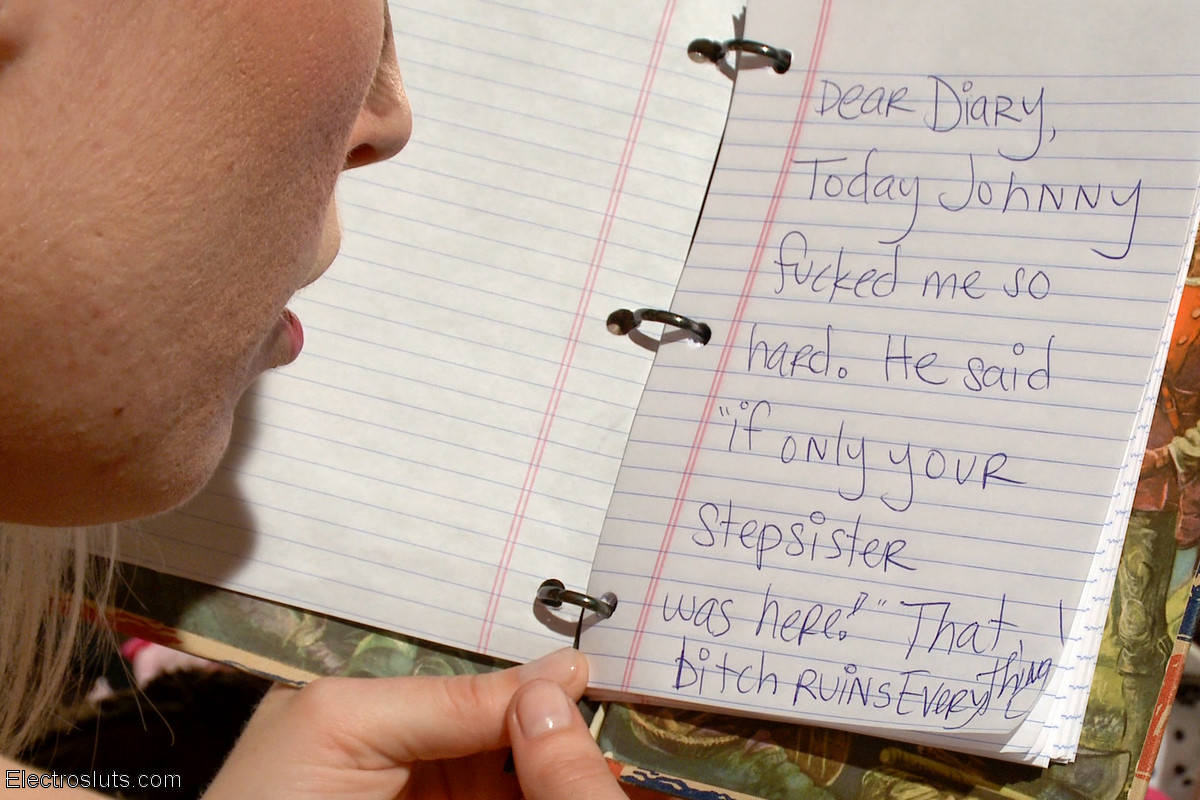 Dear Diary,
Today Johnny
fucked me so
hard. He said
"if only your
stepsister
was here!" That
bitch ruins everything
Electrosluts.com